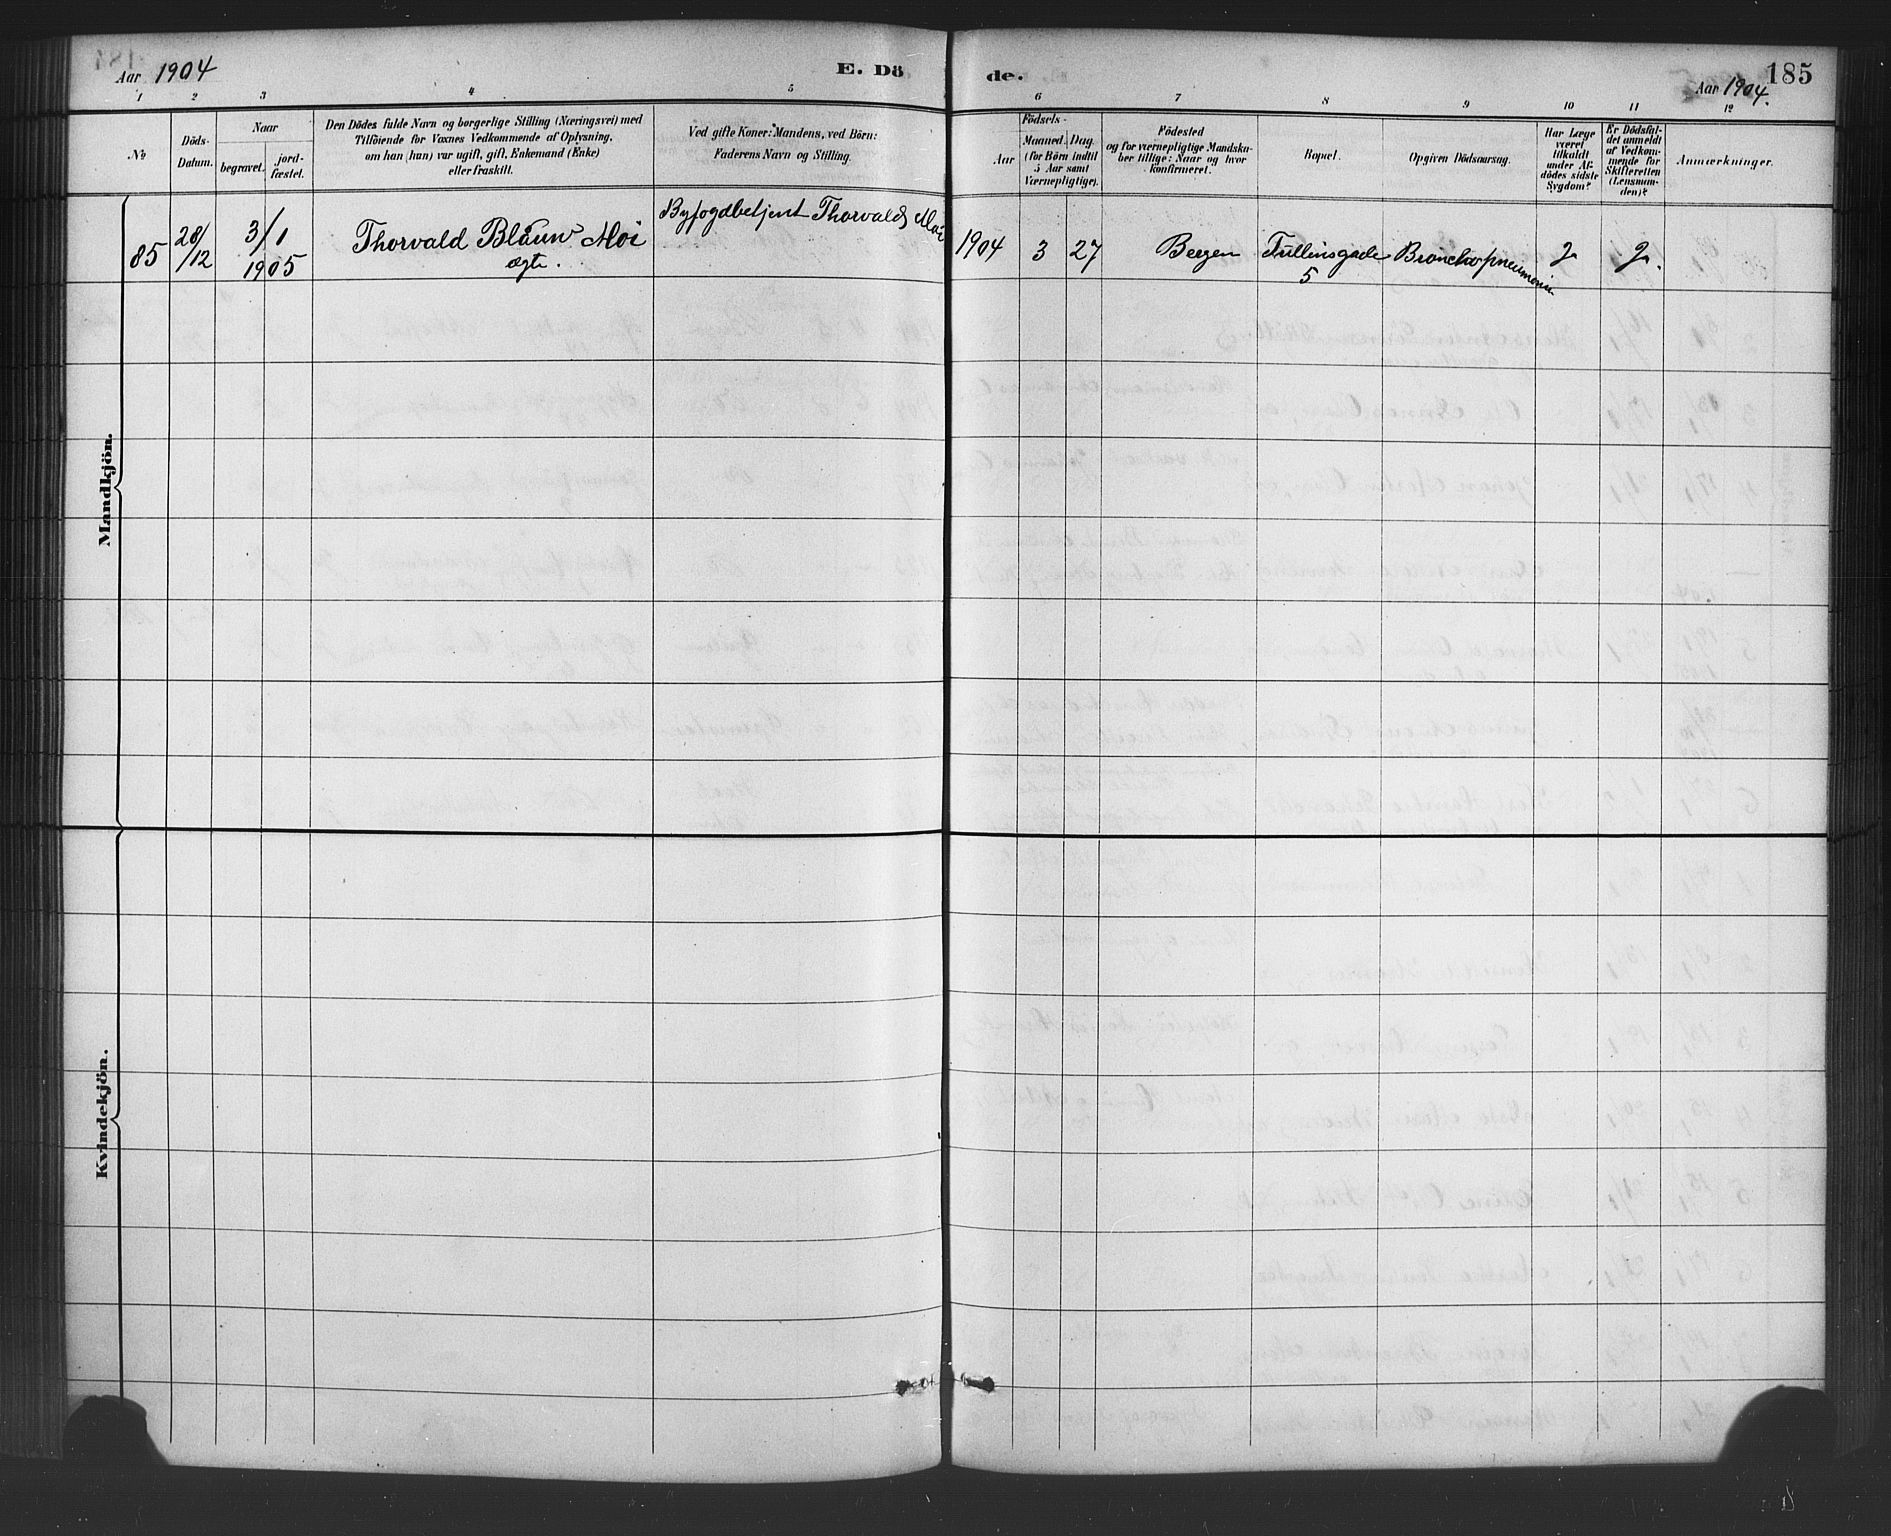 Aar 1904
E. Dö
de.
Aar 1904.
185
1 2 3 4 5 6 7 8 9 10 11 12
No
Döds-
Datum.
Naar
begravet.
jord-
fæstet.
Den Dödes fulde Navn og borgerlige Stilling (Næringsvei) med
Tilföiende for Voxnes Vedkommende af Oplysning,
om han (hun) var ugift, gift, Enkemand (Enke)
eller fraskilt.
Ved gifte Koner: Mandens, ved Börn:
Faderens Navn og Stilling.
Födsels-
Aar
Maaned. Dag.
(for Börn indtil
5 Aar samt
Værnepligtige).
Födested
og for værnepligtige Mandska-
ber tillige: Naar og hvor
konfirmeret.
Bopæl.
Opgiven Dödsaarsag.
Har Læge
været
tilkaldt
under Af-
dödes sidste
Sygdom?
Er Dödsfal-
det anmeldt
af Vedkom-
mende for
Skifteretten
(Lensman-
den)?
Anmærkninger.
Mandkjön.
85
28/12
3/1
1905
Thorvald Blauw Moi
ægte.
Byfogdbetjent Thorvald Moi
1904
3
27
Bergen
Tullinsgade
5
Bronchopneumoni
J
J.
Kvindekjön.